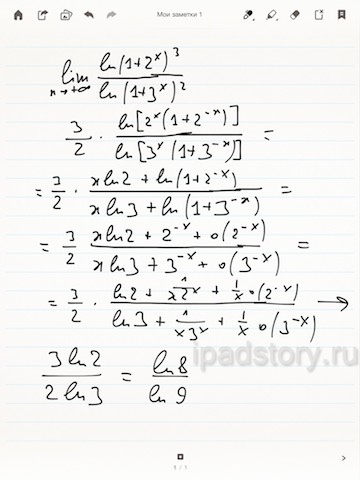 Мои заметки 1
lim x→+∞ ln(1+2^x)^3 / ln(1+3^x)^2
3/2 · ln[2^x(1+2^-x)] / ln[3^x(1+3^-x)] =
= 3/2 · xln2 + ln(1+2^-x) / xln3 + ln(1+3^-x) =
= 3/2 xln2 + 2^-x + o(2^-x) / xln3 + 3^-x + o(3^-x) =
= 3/2 · ln2 + 1/x2^x + 1/x o(2^-x) / ln3 + 1/x3^x + 1/x o(3^-x) →
3ln2 / 2ln3 = ln8 / ln9
ipadstory.ru
1 / 1